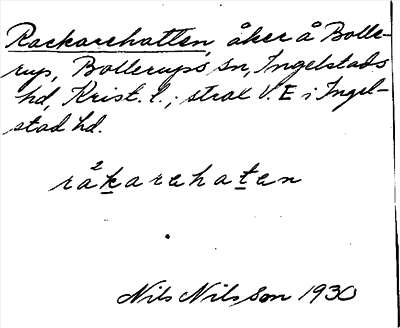 Rackarehatten, åker å Bolle-
rup, Bollerups sn, Ingelstads
hd, Krist. l.; strax V. E i Ingel-
stad hd.
rå²karehaten
Nils Nilsson 1930